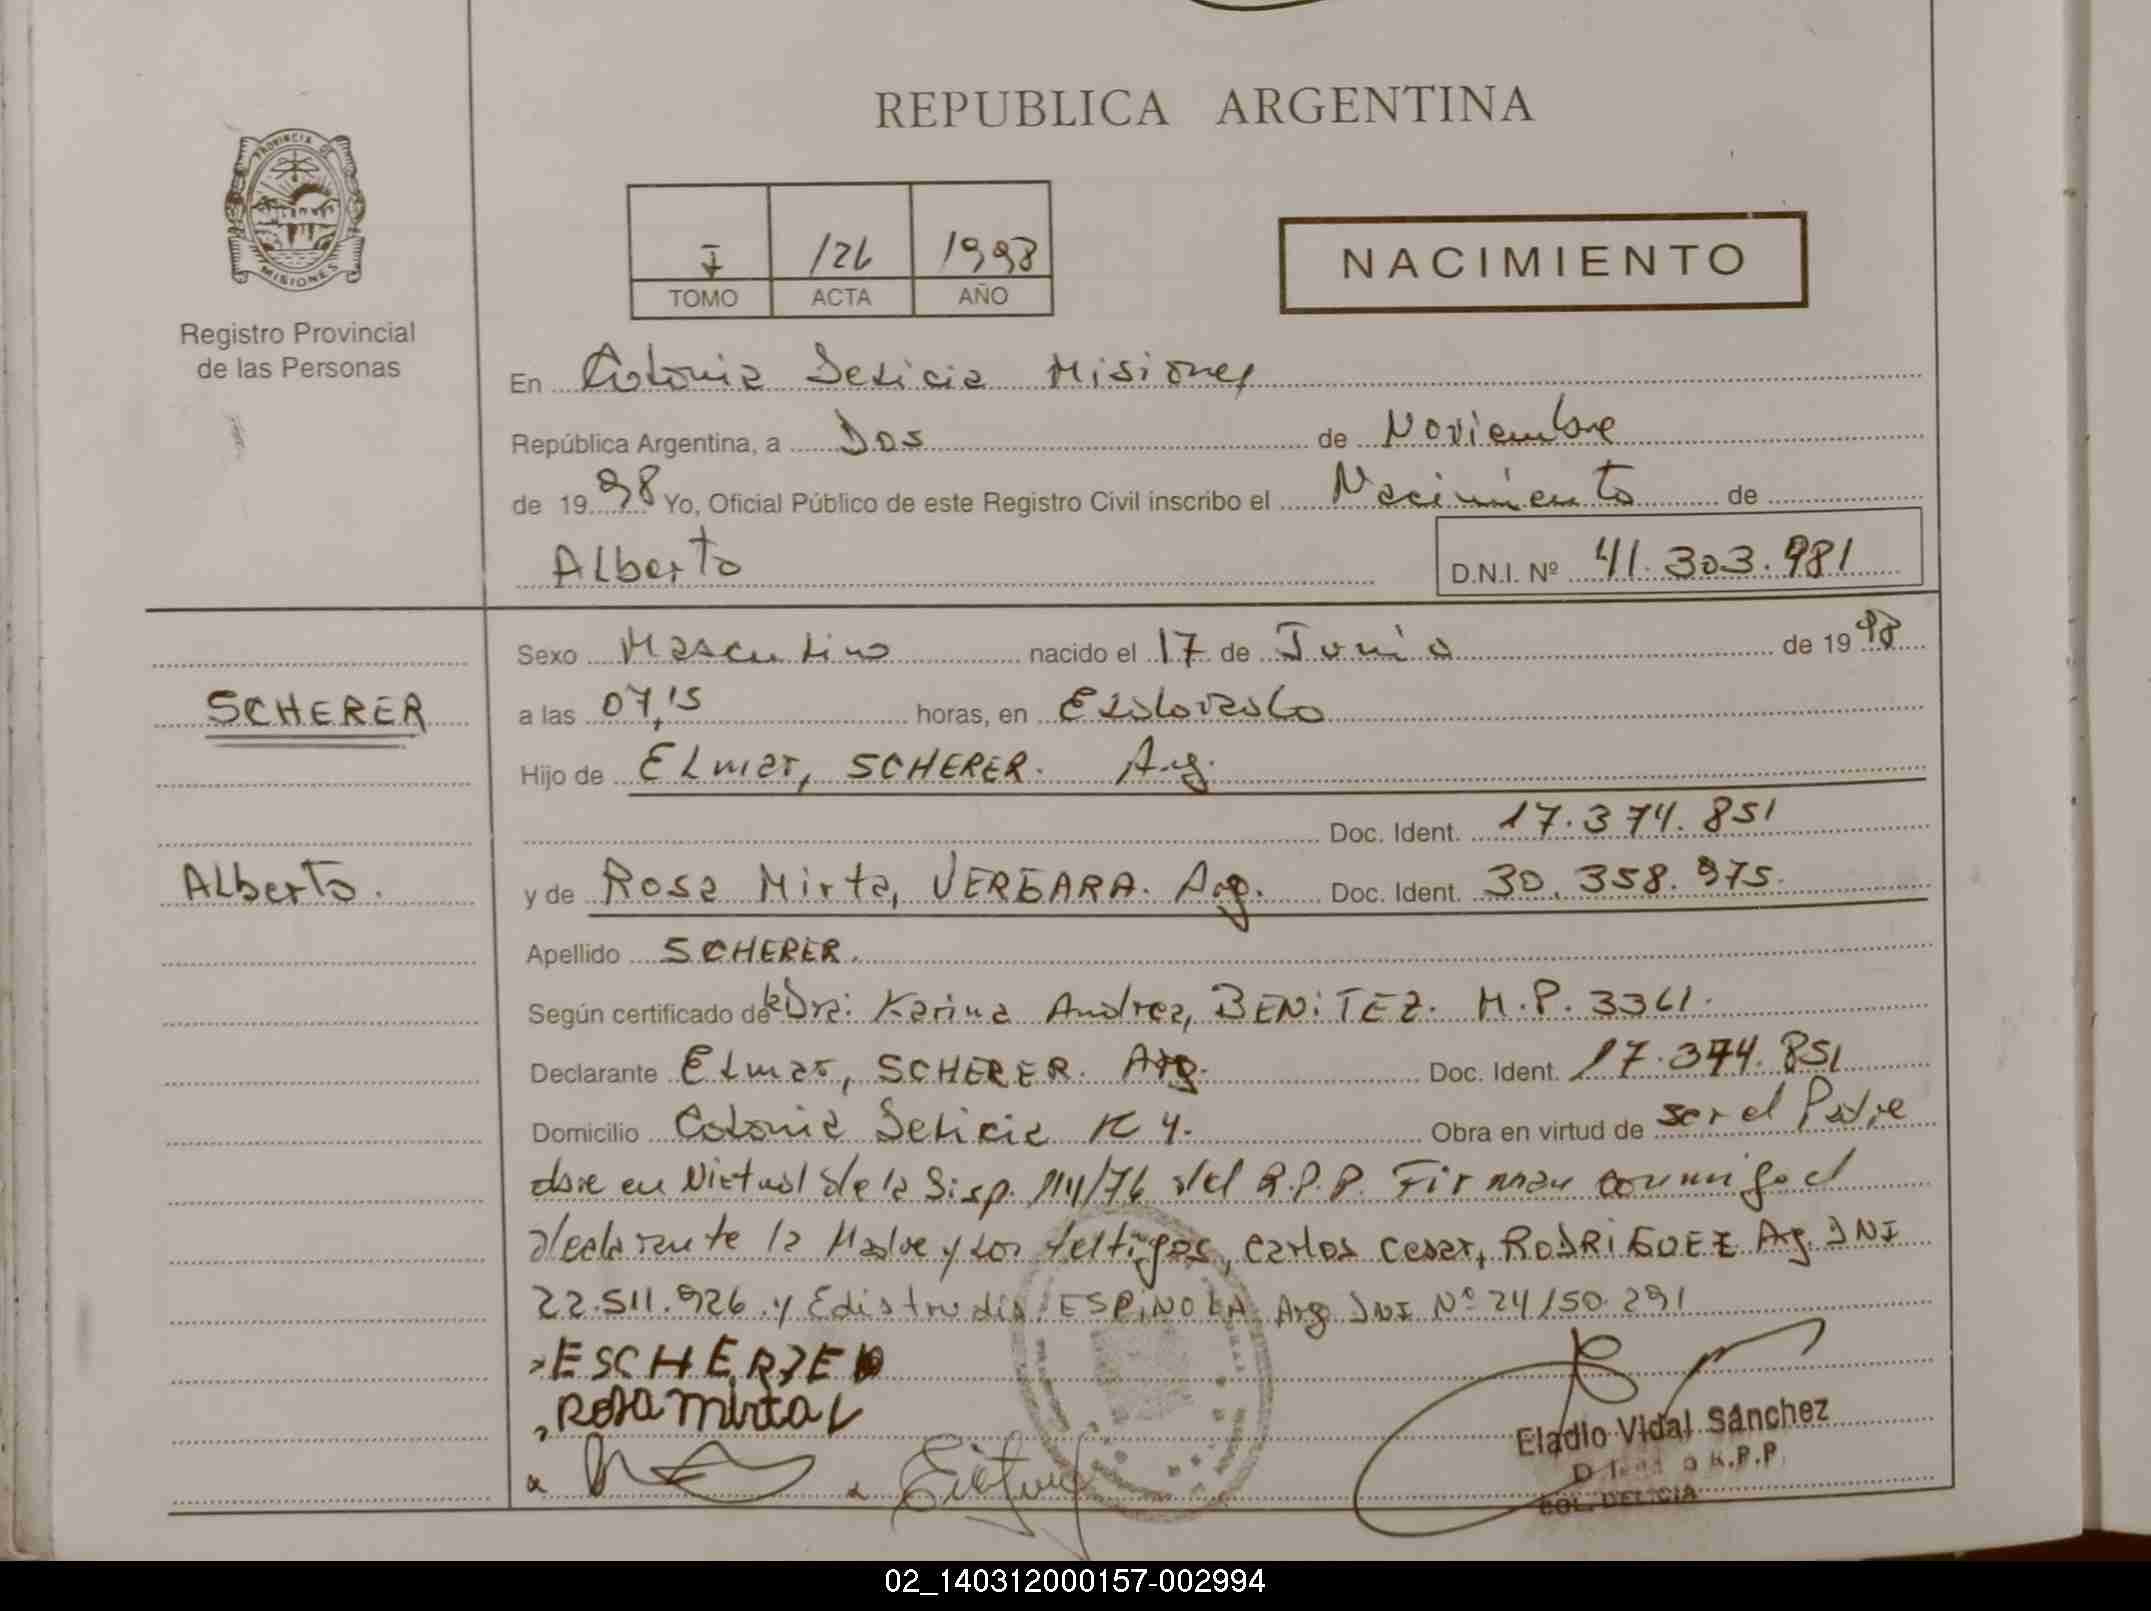 REPUBLICA ARGENTINA
PROVINCIA DE
MISIONES
Registro Provincial
de las Personas
I 126 1998
TOMO ACTA AÑO
NACIMIENTO
En Colonia Delicia Misiones
República Argentina, a Dos de Noviembre
de 19 98 Yo, Oficial Público de este Registro Civil inscribo el Nacimiento de
Alberto D.N.I. Nº 41.303.981
Sexo Masculino nacido el 17 de Junio de 19 98
SCHERER
a las 07,15 horas, en Eldorado
Hijo de Elmar, SCHERER. Arg.
Doc. Ident. 17.374.851
Alberto.
y de Rosa Mirta, VERGARA. Arg. Doc. Ident. 30.358.975.
Apellido SCHERER.
Según certificado de Dra: Karina Andrea, BENITEZ. M.P. 3361.
Declarante Elmar, SCHERER. Arg. Doc. Ident. 17.374.851
Domicilio Colonia Delicia K 4. Obra en virtud de ser el Padre
en Virtud de la Disp. /76 del R.P.P. Firman conmigo el
declarante la Madre y los testigos, Carlos Cesar, RODRIGUEZ Arg. DNI
22.511.926 y Edistrudis ESPINOLA Arg DNI Nº 24.150.291
ROSA Mirta V
Eladio Vidal Sánchez
R.P.P.
COL. DELICIA
02_140312000157-002994